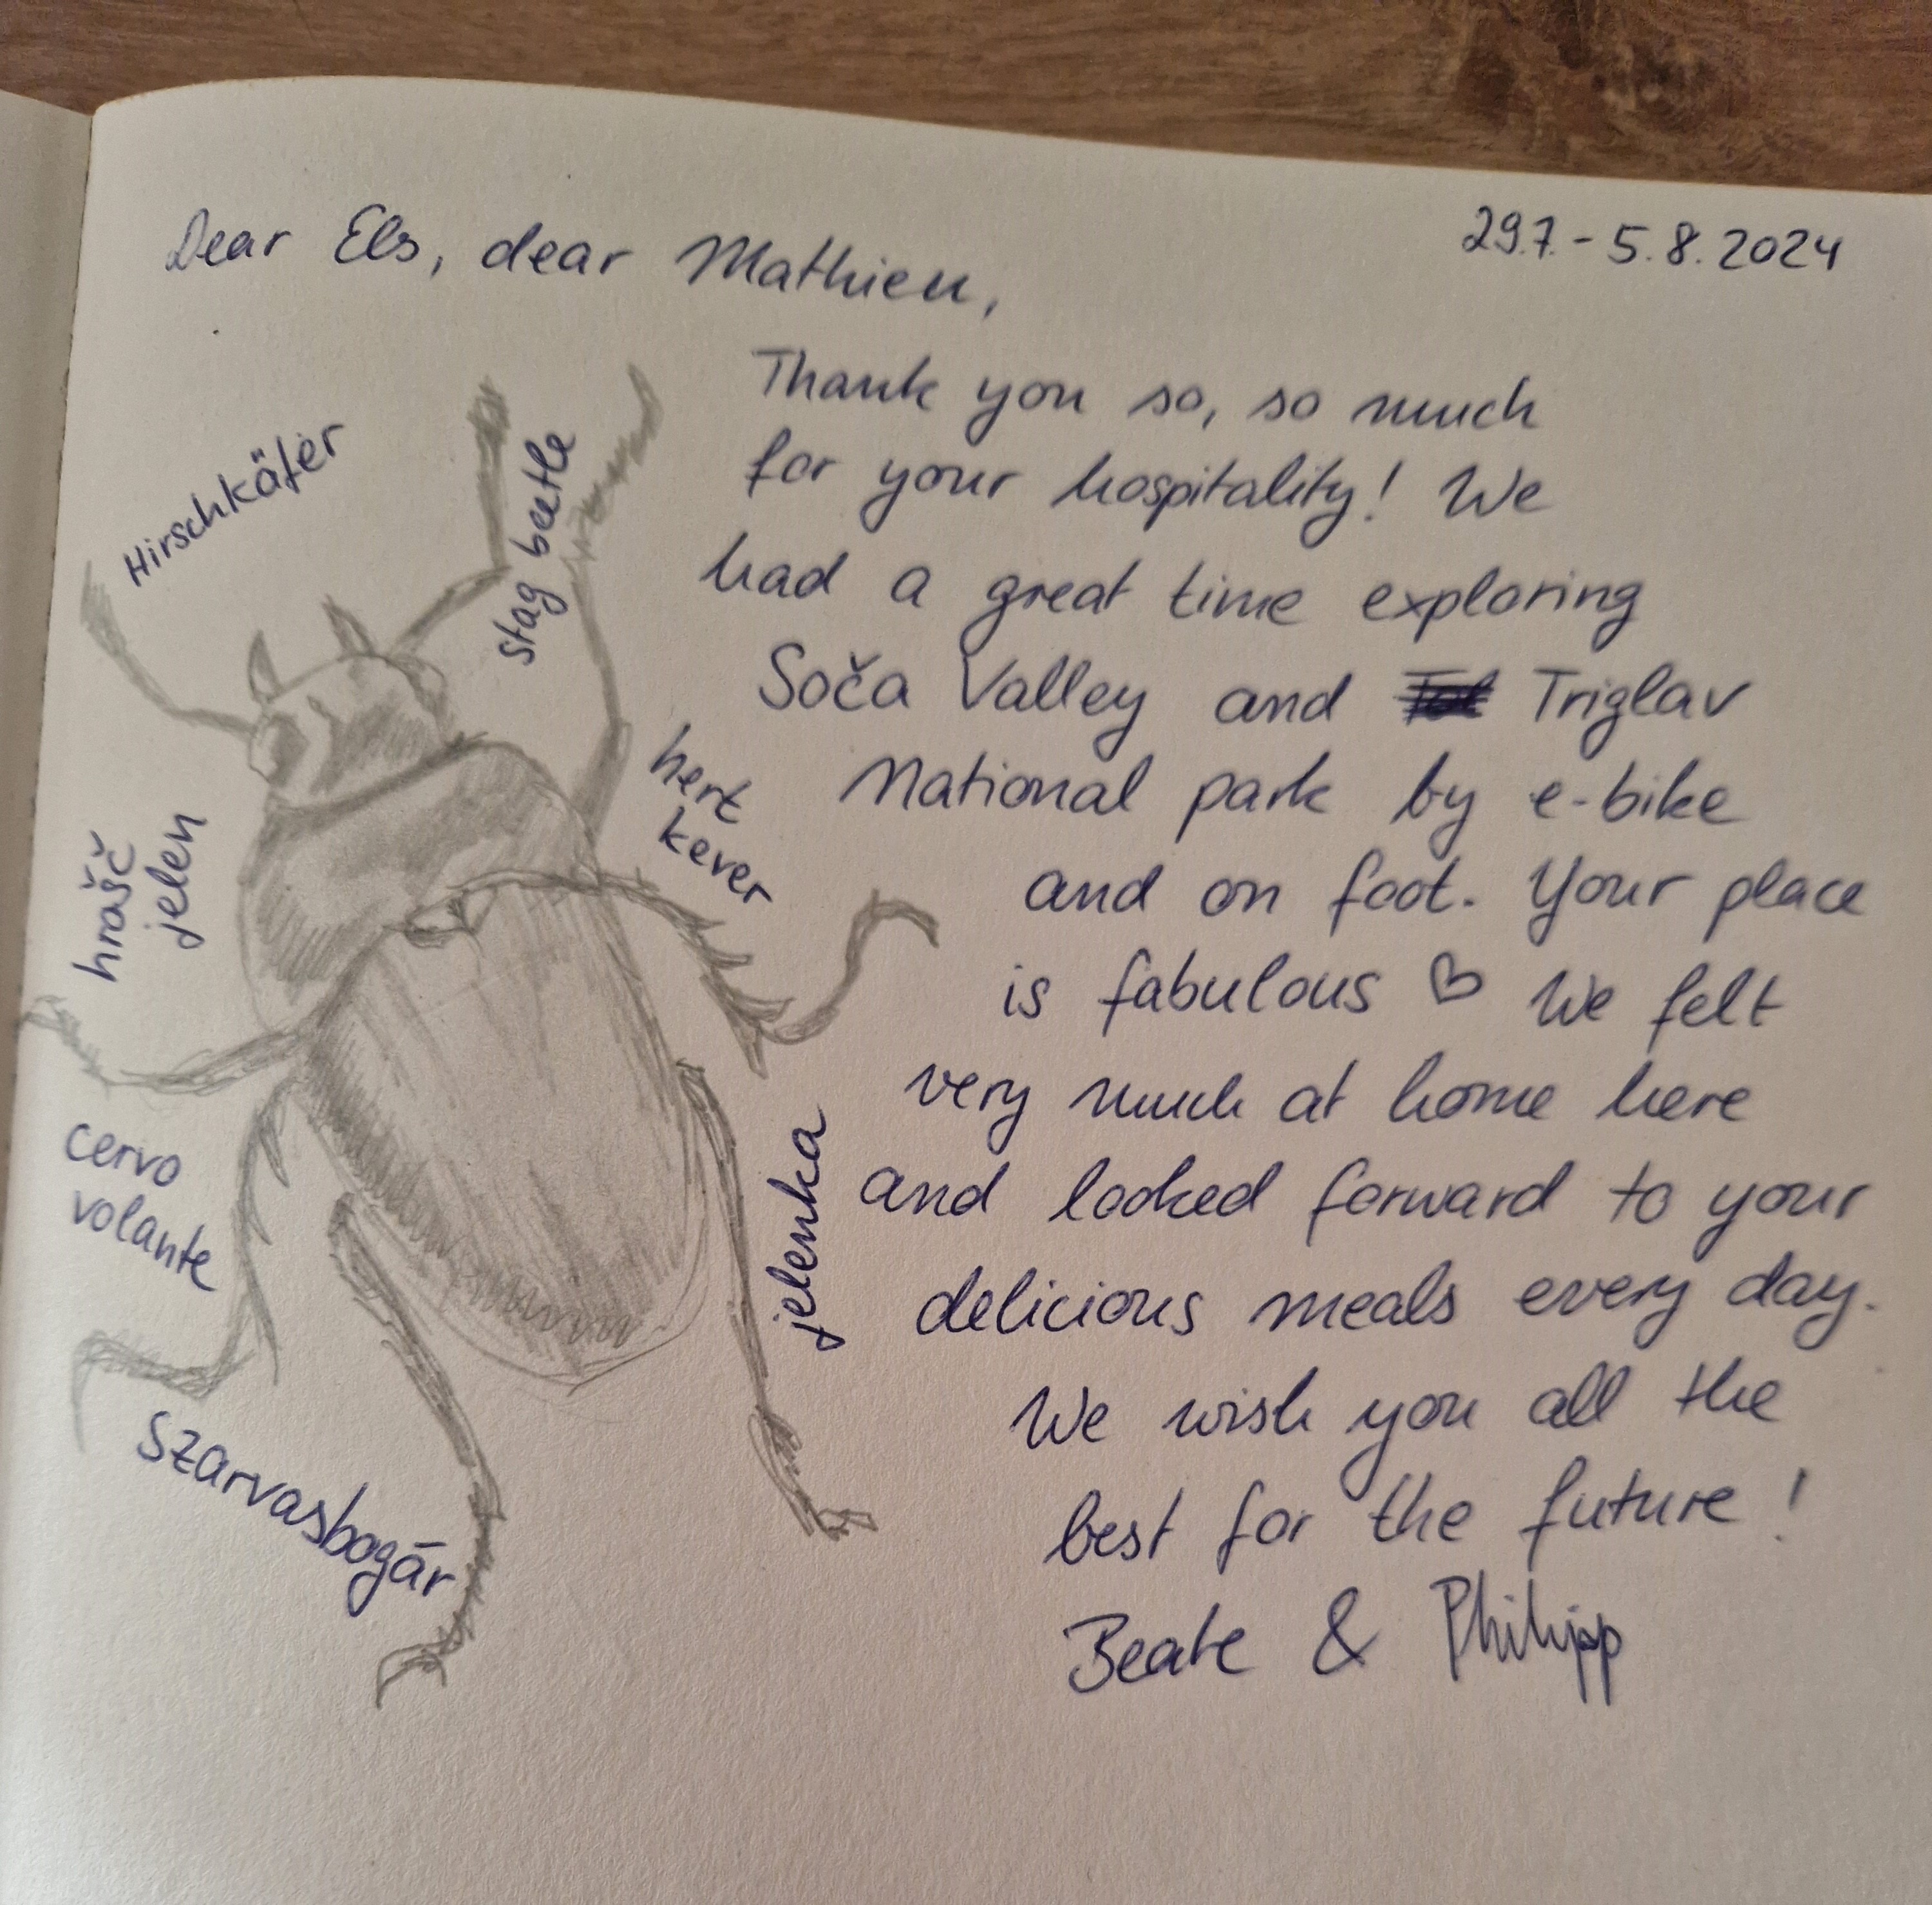 29.7. - 5.8.2024
Dear Els, dear Mathieu,
Thank you so, so much
for your hospitality! We
had a great time exploring
Soča Valley and Triglav
National park by e-bike
and on foot. Your place
is fabulous ♡ We felt
very much at home here
and looked forward to your
delicious meals every day.
We wish you all the
best for the future!
Beate & Philipp
Hirschkäfer
stag beetle
hert
kever
hrošč
jelen
cervo
volante
jelenka
szarvasbogár